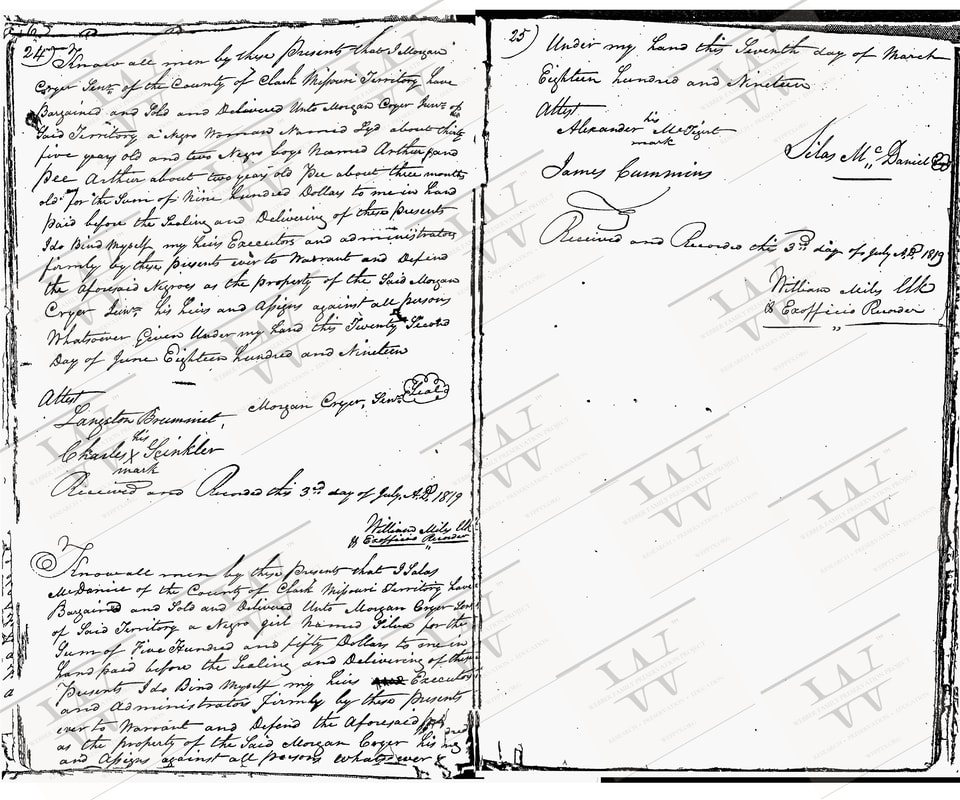 24) Know all men by these Presents that I Morgan
Cryer Senr. of the County of Clark Missouri Territory have
Bargained and Sold and Delivered Unto Morgan Cryer Junr. of
Said Territory a Negro Woman Named Lyd about thirty
five years old and two Negro boys Named Arthur and
Pee Arthur about two years old Pee about three months
old for the Sum of Nine hundred Dollars to me in hand
paid before the Sealing and Delivering of these presents
I do Bind Myself my heirs Executors and administrators
firmly by these presents ever to Warrant and Defend
the aforesaid Negroes as the property of the Said Morgan
Cryer Junr. his heirs and Assigns against all persons
Whatsoever Given Under my hand this Twenty Second
Day of June Eighteen hundred and Nineteen
Attest
Morgan Cryer, Senr. Seal
Langston Brummet,
his
Charles X Scinkler
mark
Received and Recorded this 3rd day of July A.D. 1819
William Mils Clk
& Exofficio Recorder
Know all men by these Presents that I Salas
McDaniel of the County of Clark Missouri Territory have
Bargained and Sold and Delivered Unto Morgan Cryer Senr
of Said Territory a Negro girl Named Silva for the
Sum of Five Hundred and fifty Dollars to me in
hand paid before the Sealing and Delivering of these
Presents I do Bind Myself my heirs Executors
and Administrators firmly by these presents
ever to Warrant and Defend the Aforesaid
as the property of the Said Morgan Cryer his
and Assigns against all persons whatsoever
25) Under my hand this Seventh day of March
Eighteen hundred and Nineteen
Attest
his
Alexander McTigert
mark
Silas Mc.Daniel
James Cummins
Received and Recorded this 3rd day of July A.D. 1819
William Mils Clk
& Exofficio Recorder